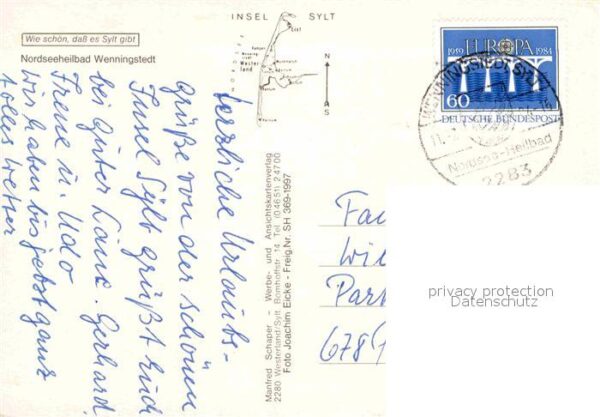 Wie schön, daß es Sylt gibt
Nordseeheilbad Wenningstedt
INSEL SYLT
NORDSEE
List
Kampen
Wenningstedt
Westerland
N
S
herzliche Urlaubs-
grüße von der schönen
Insel Sylt grüßt Euch
bei guter Laune. Gerhard
Irene u. Udo
Wir haben bis jetzt ganz
tolles Wetter
Manfred Schaper - Werbe- und Ansichtskartenverlag
2280 Westerland/Sylt · Bomhoffstr. 14 · Tel. (0 46 51) 2 47 00
Foto Joachim Eicke - Freig.Nr. SH 369-1997
1959 EUROPA 1984
60
DEUTSCHE BUNDESPOST
WENNINGSTEDT, SYLT
11.
Nordsee-Heilbad
2283
Fa
Wi
Par
678
privacy protection
Datenschutz